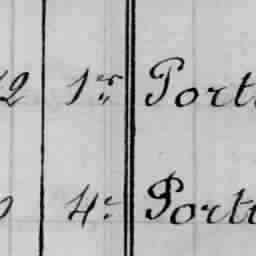 2 1er Port
4e Port